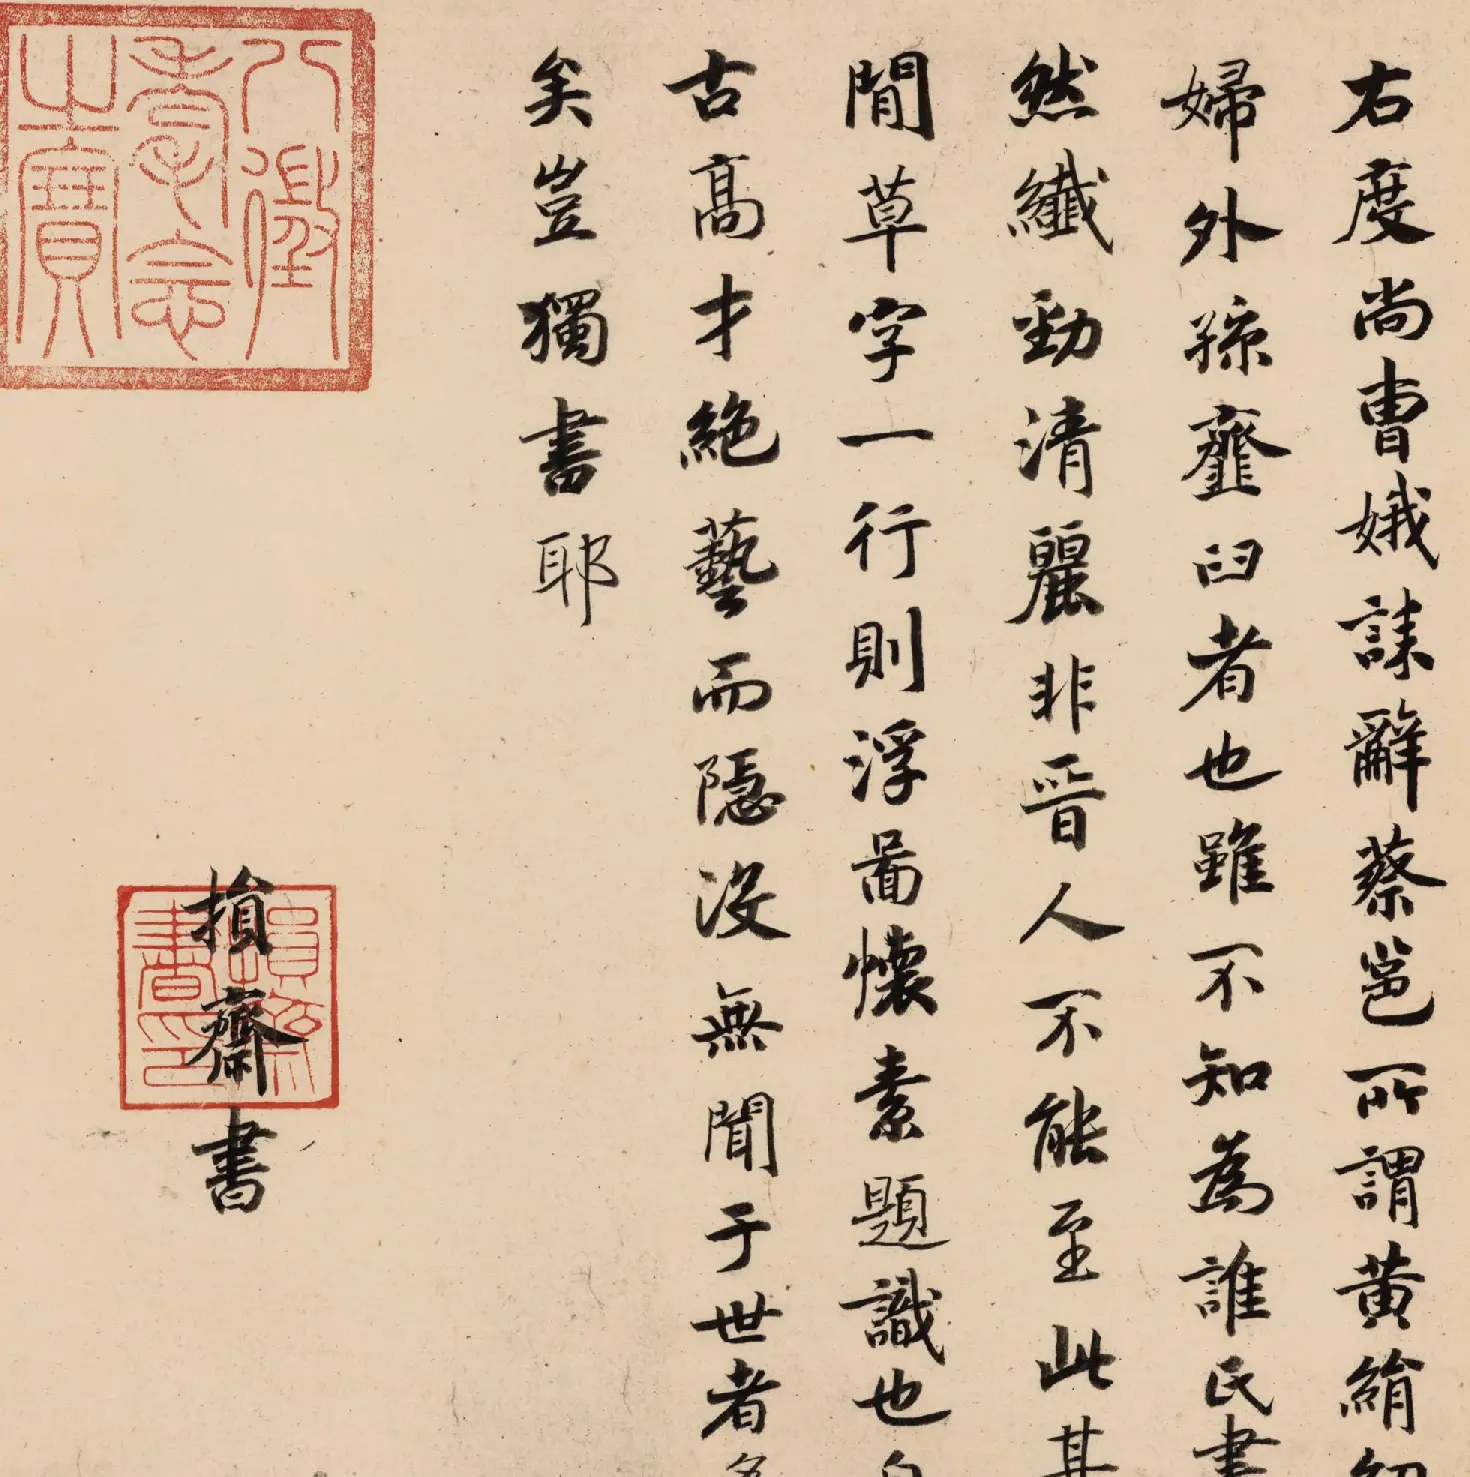 右度尚曹娥誄辭蔡邕所謂黃絹幼
婦外孫齏臼者也雖不知為誰氏書
然纖勁清麗非晉人不能至此其
閒草字一行則浮圖懷素題識也自
古高才絕藝而隱沒無聞于世者多
矣豈獨書耶
損齋書
八徵耄念之寶
損齋書印